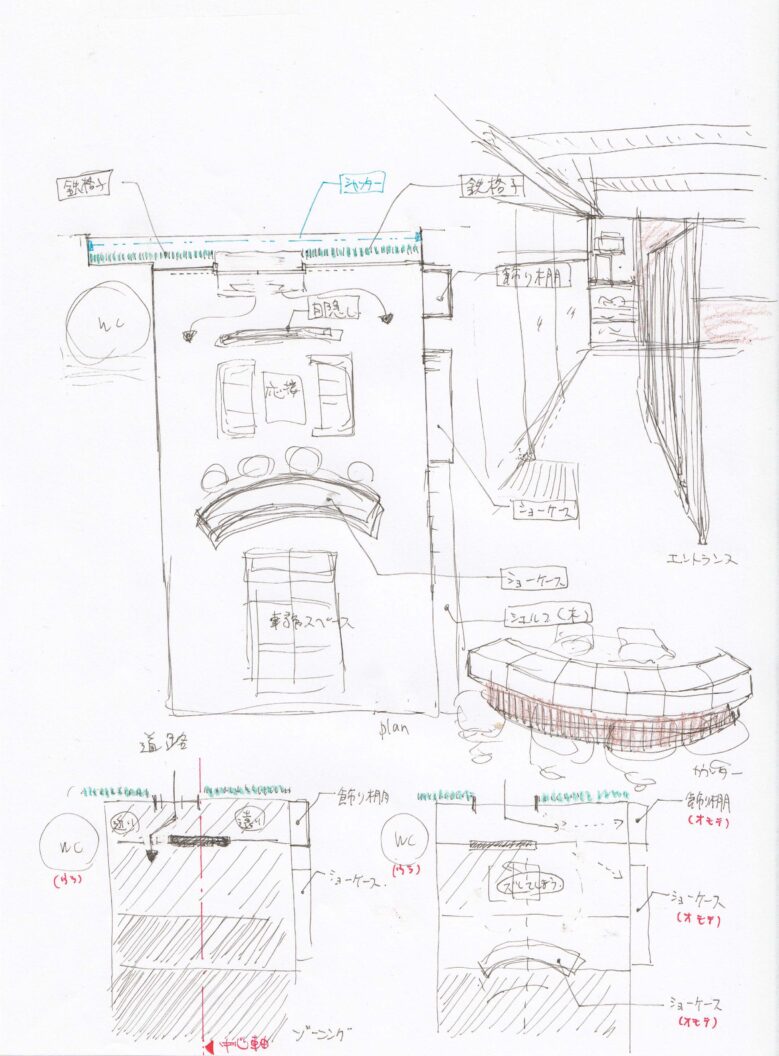 鉄格子
シャッター
鉄格子
飾り棚
WC
目隠し
応接
ショーケース
エントランス
ショーケース
シェルフ(木)
事務スペース
plan
カウンター
道路
飾り棚
飾り棚
(オモテ)
WC
(ウラ)
WC
(ウラ)
ショーケース
ズレてしまう
ショーケース
(オモテ)
ショーケース
(オモテ)
ゾーニング
中心軸